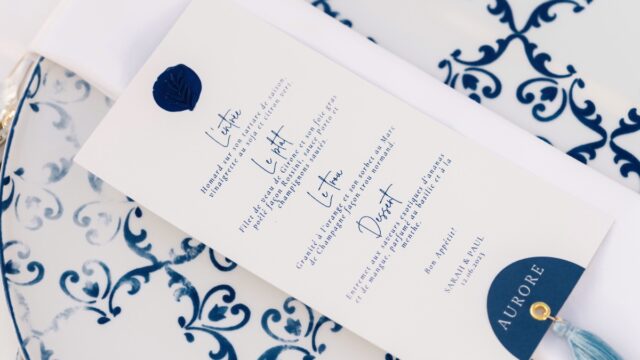 L'entrée
Homard sur son tartare de saison,
vinaigrette au soja et citron vert.
Le plat
Filet de veau de Girone et son foie gras
poêlé façon Rossini, sauce Porto et
champignons sautés.
Le trou
Granité à l'orange et son sorbet au Marc
de Champagne façon trou normand.
Dessert
Entremet aux saveurs exotiques d'ananas
et de mangue, parfumé au basilic et à la
menthe.
Bon Appétit!
SARAH & PAUL
12.06.2023
AURORE